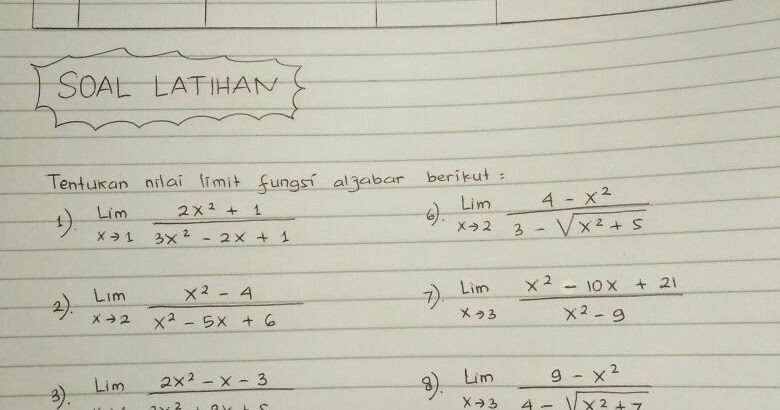 SOAL LATIHAN
Tentukan nilai limit fungsi aljabar berikut :
1). Lim x→1 (2x² + 1)/(3x² - 2x + 1)
2). Lim x→2 (x² - 4)/(x² - 5x + 6)
3). Lim 2x² - x - 3
6). Lim x→2 (4 - x²)/(3 - √(x² + 5))
7). Lim x→3 (x² - 10x + 21)/(x² - 9)
8). Lim x→3 (9 - x²)/(4 - √(x² + 7))